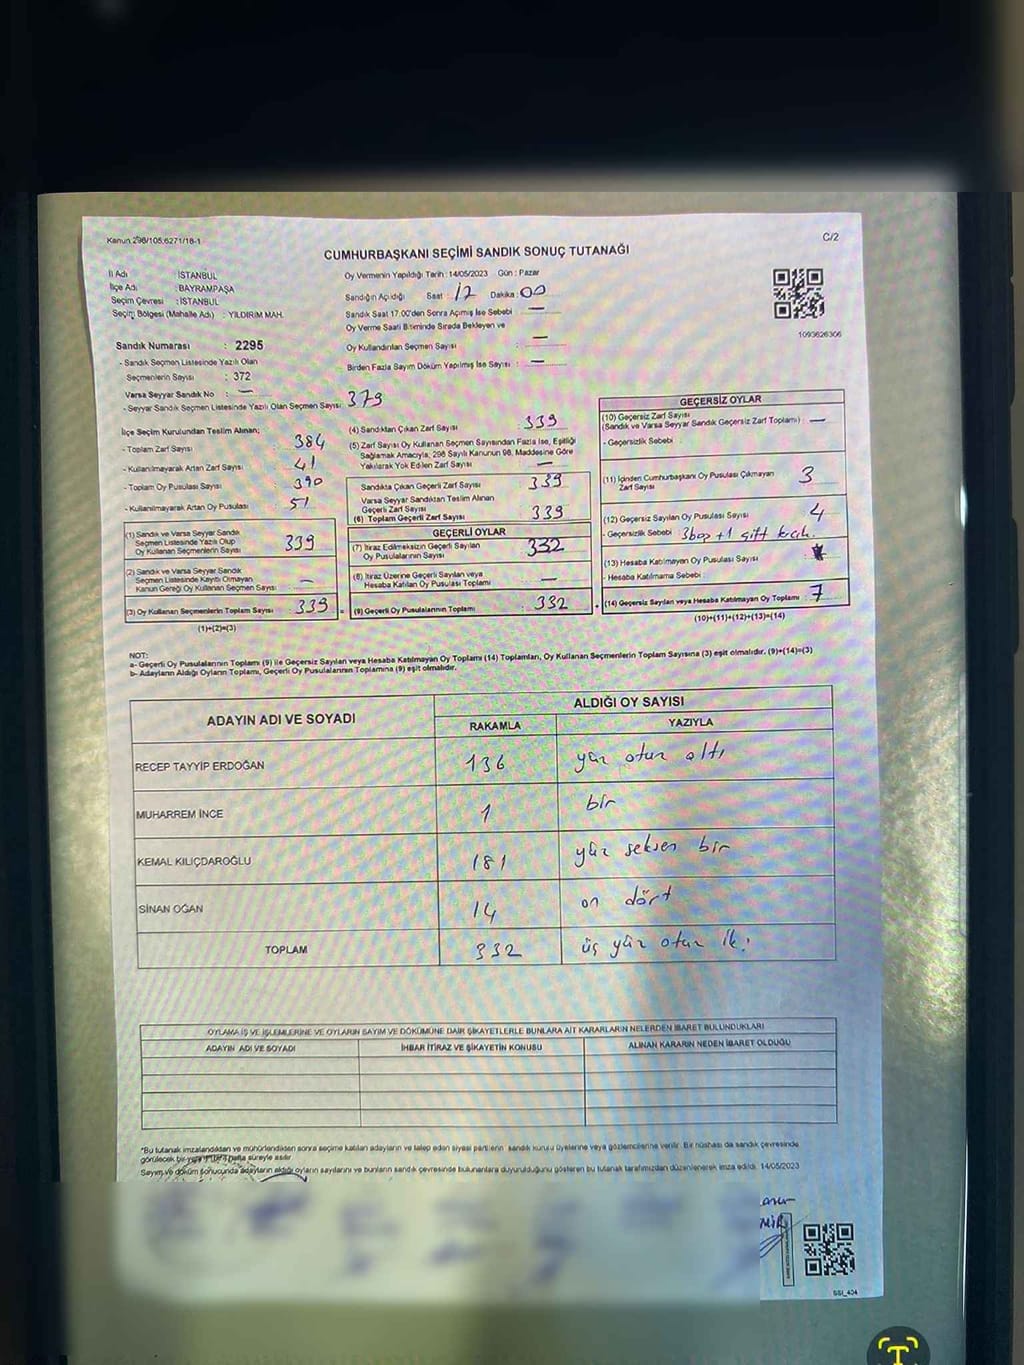 Kanun 298/105;6271/18-1
C/2
CUMHURBAŞKANI SEÇİMİ SANDIK SONUÇ TUTANAĞI
İl Adı : İSTANBUL
İlçe Adı : BAYRAMPAŞA
Seçim Çevresi : İSTANBUL
Seçim Bölgesi (Mahalle Adı) : YILDIRIM MAH.
Oy Vermenin Yapıldığı Tarih : 14/05/2023 Gün : Pazar
Sandığın Açıldığı Saat : 17 Dakika : 00
Sandık Saat 17.00'den Sonra Açılmış İse Sebebi : —
Oy Verme Saati Bitiminde Sırada Bekleyen ve
Oy Kullandırılan Seçmen Sayısı : —
Birden Fazla Sayım Döküm Yapılmış İse Sayısı : —
1093626306
Sandık Numarası : 2295
- Sandık Seçmen Listesinde Yazılı Olan
Seçmenlerin Sayısı : 372
Varsa Seyyar Sandık No : —
- Seyyar Sandık Seçmen Listesinde Yazılı Olan Seçmen Sayısı : 379
İlçe Seçim Kurulundan Teslim Alınan;
- Toplam Zarf Sayısı : 384
- Kullanılmayarak Artan Zarf Sayısı : 41
- Toplam Oy Pusulası Sayısı : 390
- Kullanılmayarak Artan Oy Pusulası : 51
(1) Sandık ve Varsa Seyyar Sandık
Seçmen Listesinde Yazılı Olup
Oy Kullanan Seçmenlerin Sayısı : 339
(2) Sandık ve Varsa Seyyar Sandık
Seçmen Listesinde Kayıtlı Olmayan
Kanun Gereği Oy Kullanan Seçmen Sayısı : —
(3) Oy Kullanan Seçmenlerin Toplam Sayısı : 339
(1)+(2)=(3)
(4) Sandıktan Çıkan Zarf Sayısı : 339
(5) Zarf Sayısı Oy Kullanan Seçmen Sayısından Fazla İse, Eşitliği
Sağlamak Amacıyla, 298 Sayılı Kanunun 98. Maddesine Göre
Yakılarak Yok Edilen Zarf Sayısı : —
Sandıkta Çıkan Geçerli Zarf Sayısı : 339
Varsa Seyyar Sandıktan Teslim Alınan
Geçerli Zarf Sayısı
(6) Toplam Geçerli Zarf Sayısı : 339
GEÇERLİ OYLAR
(7) İtiraz Edilmeksizin Geçerli Sayılan
Oy Pusulalarının Sayısı : 332
(8) İtiraz Üzerine Geçerli Sayılan veya
Hesaba Katılan Oy Pusulası Toplamı : —
= (9) Geçerli Oy Pusulalarının Toplamı : 332
GEÇERSİZ OYLAR
(10) Geçersiz Zarf Sayısı
(Sandık ve Varsa Seyyar Sandık Geçersiz Zarf Toplamı) : —
- Geçersizlik Sebebi
(11) İçinden Cumhurbaşkanı Oy Pusulası Çıkmayan
Zarf Sayısı : 3
(12) Geçersiz Sayılan Oy Pusulası Sayısı : 4
- Geçersizlik Sebebi : 3 boş + 1 çift
(13) Hesaba Katılmayan Oy Pusulası Sayısı :
- Hesaba Katılmama Sebebi
+ (14) Geçersiz Sayılan veya Hesaba Katılmayan Oy Toplamı : 7
(10)+(11)+(12)+(13)=(14)
NOT:
a- Geçerli Oy Pusulalarının Toplamı (9) ile Geçersiz Sayılan veya Hesaba Katılmayan Oy Toplamı (14) Toplamları, Oy Kullanan Seçmenlerin Toplam Sayısına (3) eşit olmalıdır. (9)+(14)=(3)
b- Adayların Aldığı Oyların Toplamı, Geçerli Oy Pusulalarının Toplamına (9) eşit olmalıdır.
ADAYIN ADI VE SOYADI
ALDIĞI OY SAYISI
RAKAMLA YAZIYLA
RECEP TAYYİP ERDOĞAN 136 yüz otuz altı
MUHARREM İNCE 1 bir
KEMAL KILIÇDAROĞLU 181 yüz seksen bir
SİNAN OĞAN 14 on dört
TOPLAM 332 üç yüz otuz iki
OYLAMA İŞ VE İŞLEMLERİNE VE OYLARIN SAYIM VE DÖKÜMÜNE DAİR ŞİKAYETLERLE BUNLARA AİT KARARLARIN NELERDEN İBARET BULUNDUKLARI
ADAYIN ADI VE SOYADI İHBAR İTİRAZ VE ŞİKAYETİN KONUSU ALINAN KARARIN NEDEN İBARET OLDUĞU
*Bu tutanak imzalandıktan ve mühürlendikten sonra seçime katılan adayların ve talep eden siyasi partilerin sandık kurulu üyelerine veya gözlemcilerine verilir. Bir nüshası da sandık çevresinde
görülecek bir yere 1 hafta süreyle asılır.
Sayım ve döküm sonucunda adayların aldığı oyların sayılarını ve bunların sandık çevresinde bulunanlara duyurulduğunu gösteren bu tutanak tarafımızdan düzenlenerek imza edildi. 14/05/2023